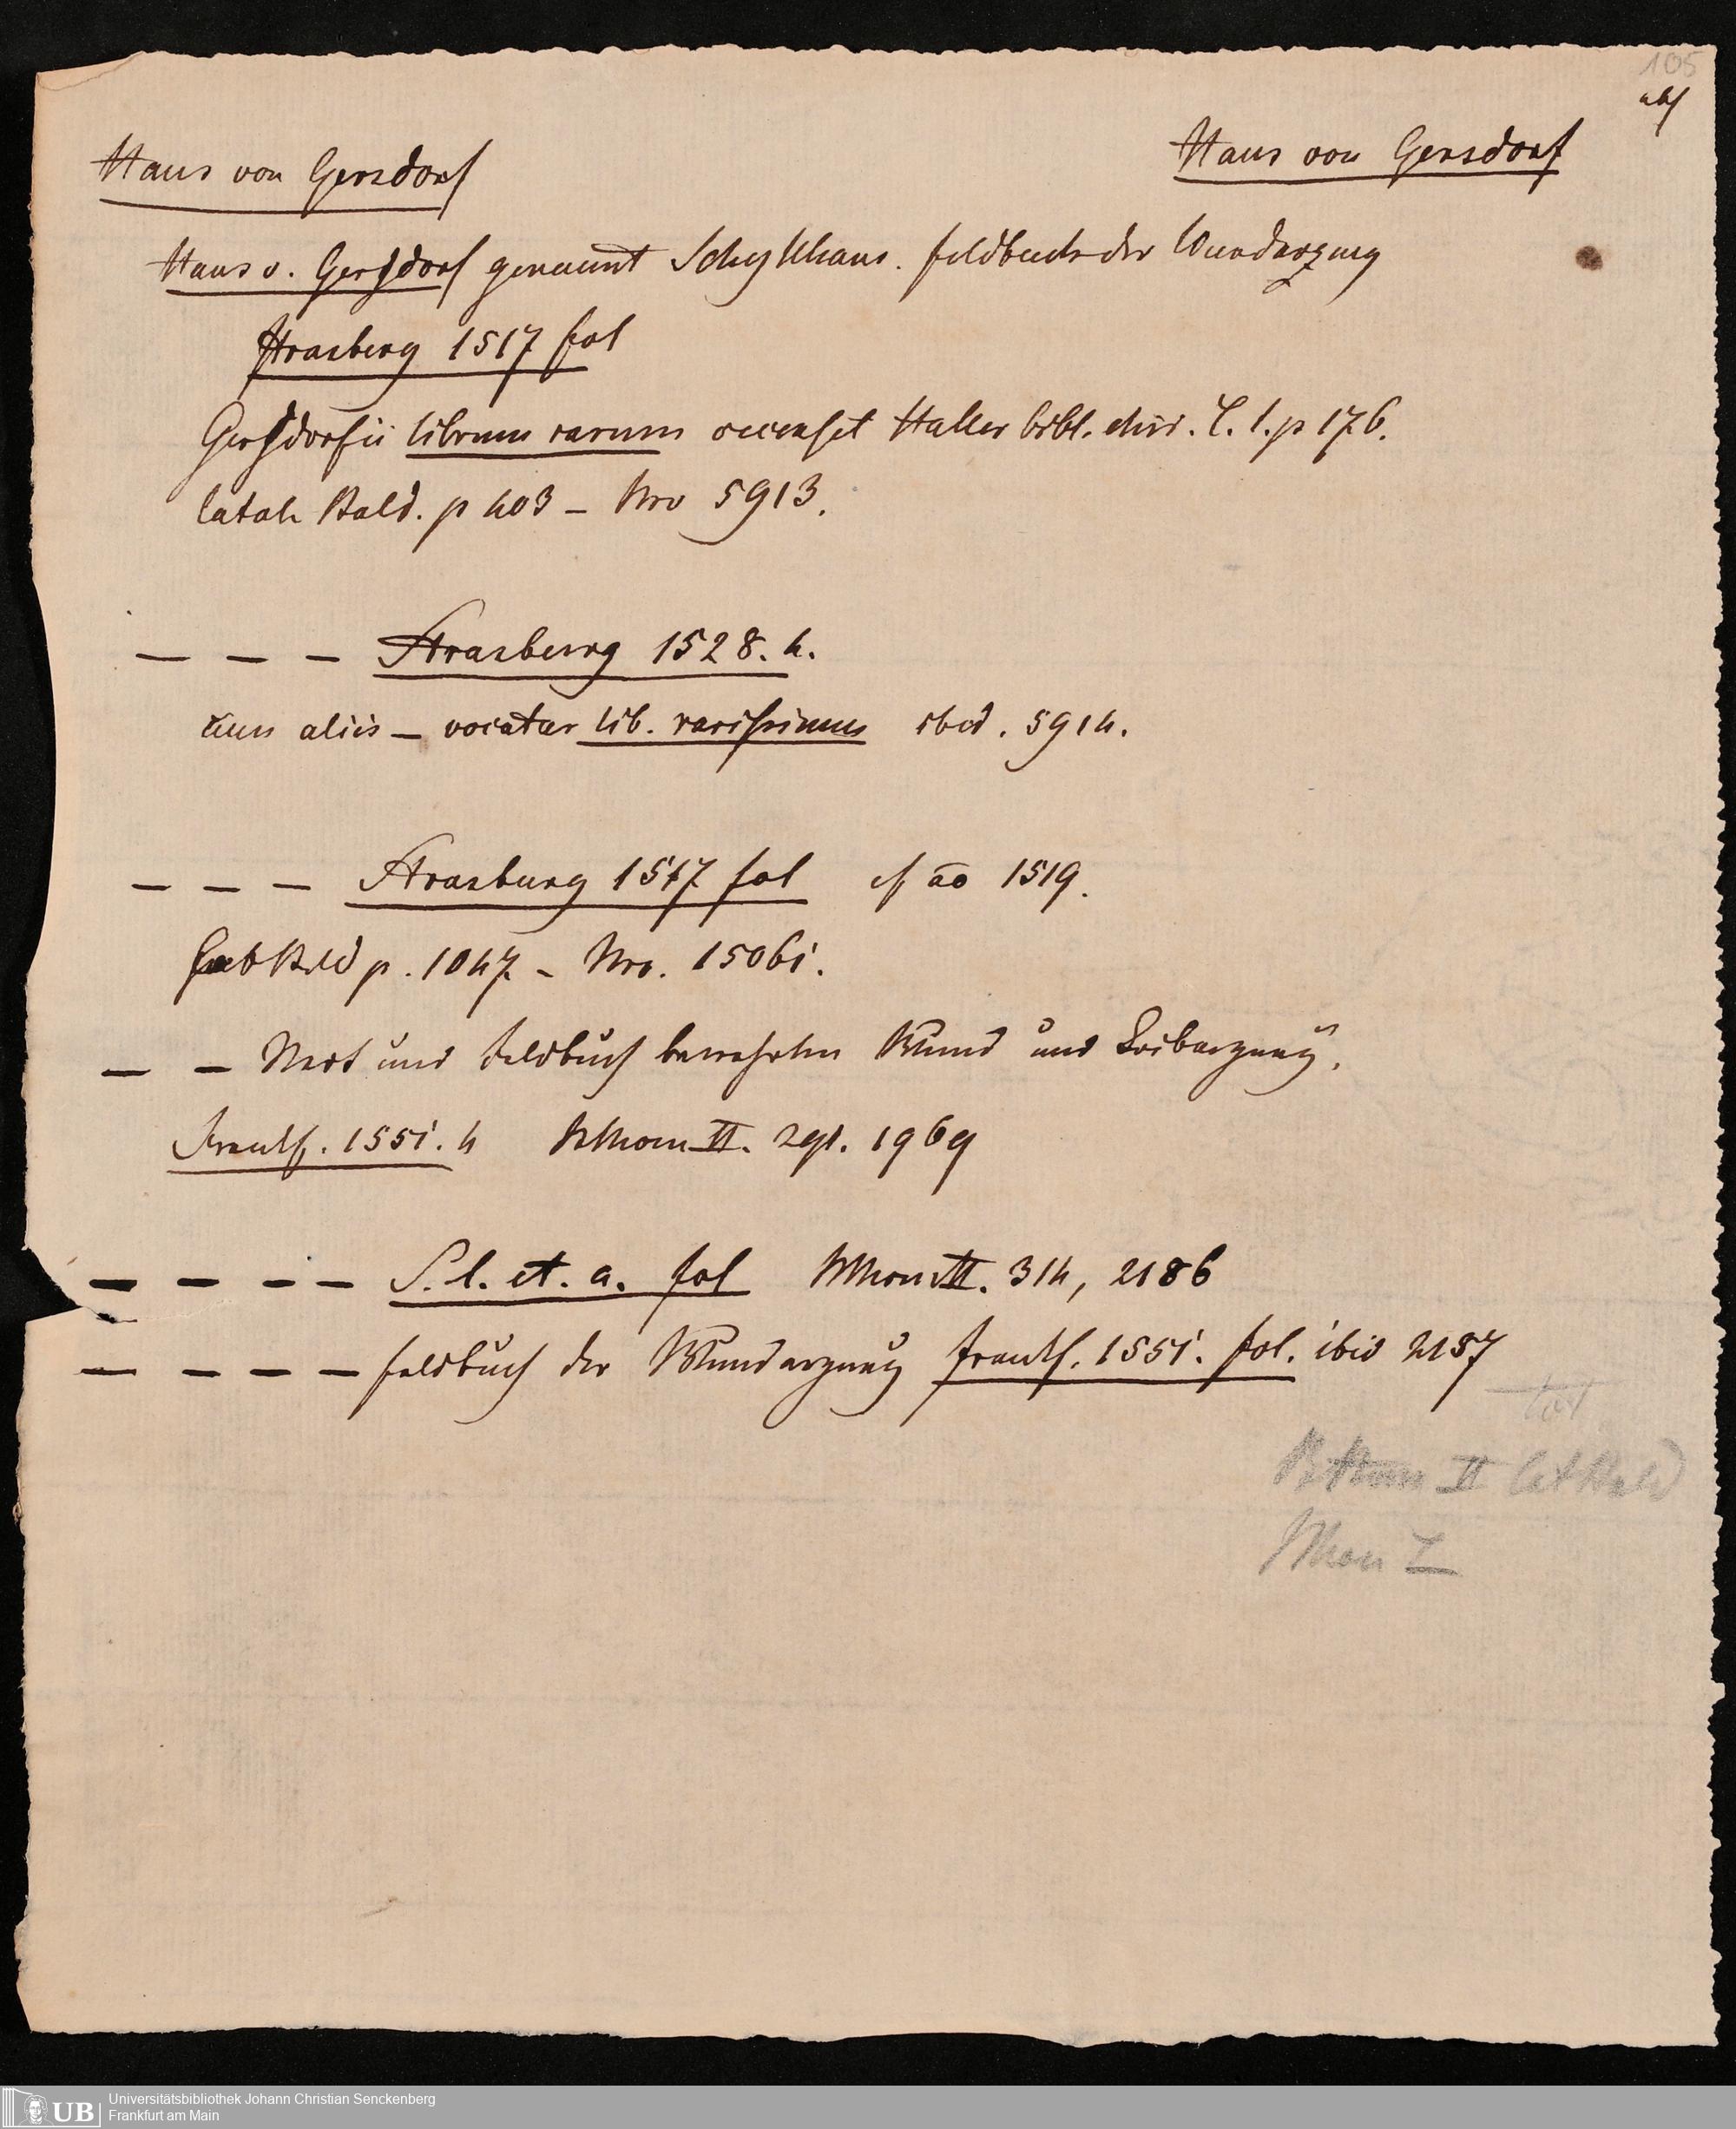 105
abs
Hans von Gersdorf
Hans von Gersdorf
Hans v. Gersdorf genannt Schylhans. feldbuch der Wundarzney
Strasberg 1517 fol
Gersdorfii librum rarum recenset Haller bibl. chir. T. 1. p 176.
Catal. Bald. p 403 – Nro 5913.
– – – Strasburg 1528. 4.
cum aliis – vocatur lib. rarissimus ibid. 5914.
– – – Strasburg 1517 fol cf ao 1519.
Bald p. 1047 – Nro. 15061.
– – Not und Feldbuch bewehrten Wund und Leibarzney.
Frankf. 1551. 4 II. 291. 1969
– – – – S. l. et. a. fol II. 314, 2186
– – – – feldbuch der Wundarzney Frankf. 1551. fol. ibid 2187
II Cat Bald
UB
Universitätsbibliothek Johann Christian Senckenberg
Frankfurt am Main